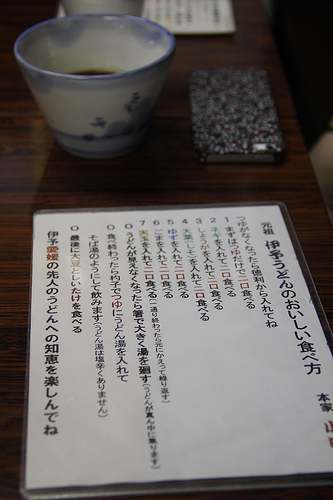 元祖 伊予うどんのおいしい食べ方
本家
つゆがなくなったら徳利から入れてね
1 まずはつゆだけで二口食べる
2 ネギを入れて二口食べる
3 しょうがを入れて二口食べる
4 大葉(しそ)を入れて二口食べる
5 ゆずを入れて二口食べる
6 ごまを入れて二口食べる
7 天玉を入れて二口食べる(一通り終わったら元にかえって繰り返す)
○ うどんが見えなくなったら箸で大きく湯を廻す(うどんが真ん中に集ります)
○ 食べ終わったら杓子でつゆにうどん湯を入れて
そば湯のようにして飲みます(うどん湯は塩辛くありません)
○ 最後に大豆といただけを食べる
伊予愛媛の先人のうどんへの知恵を楽しんでね